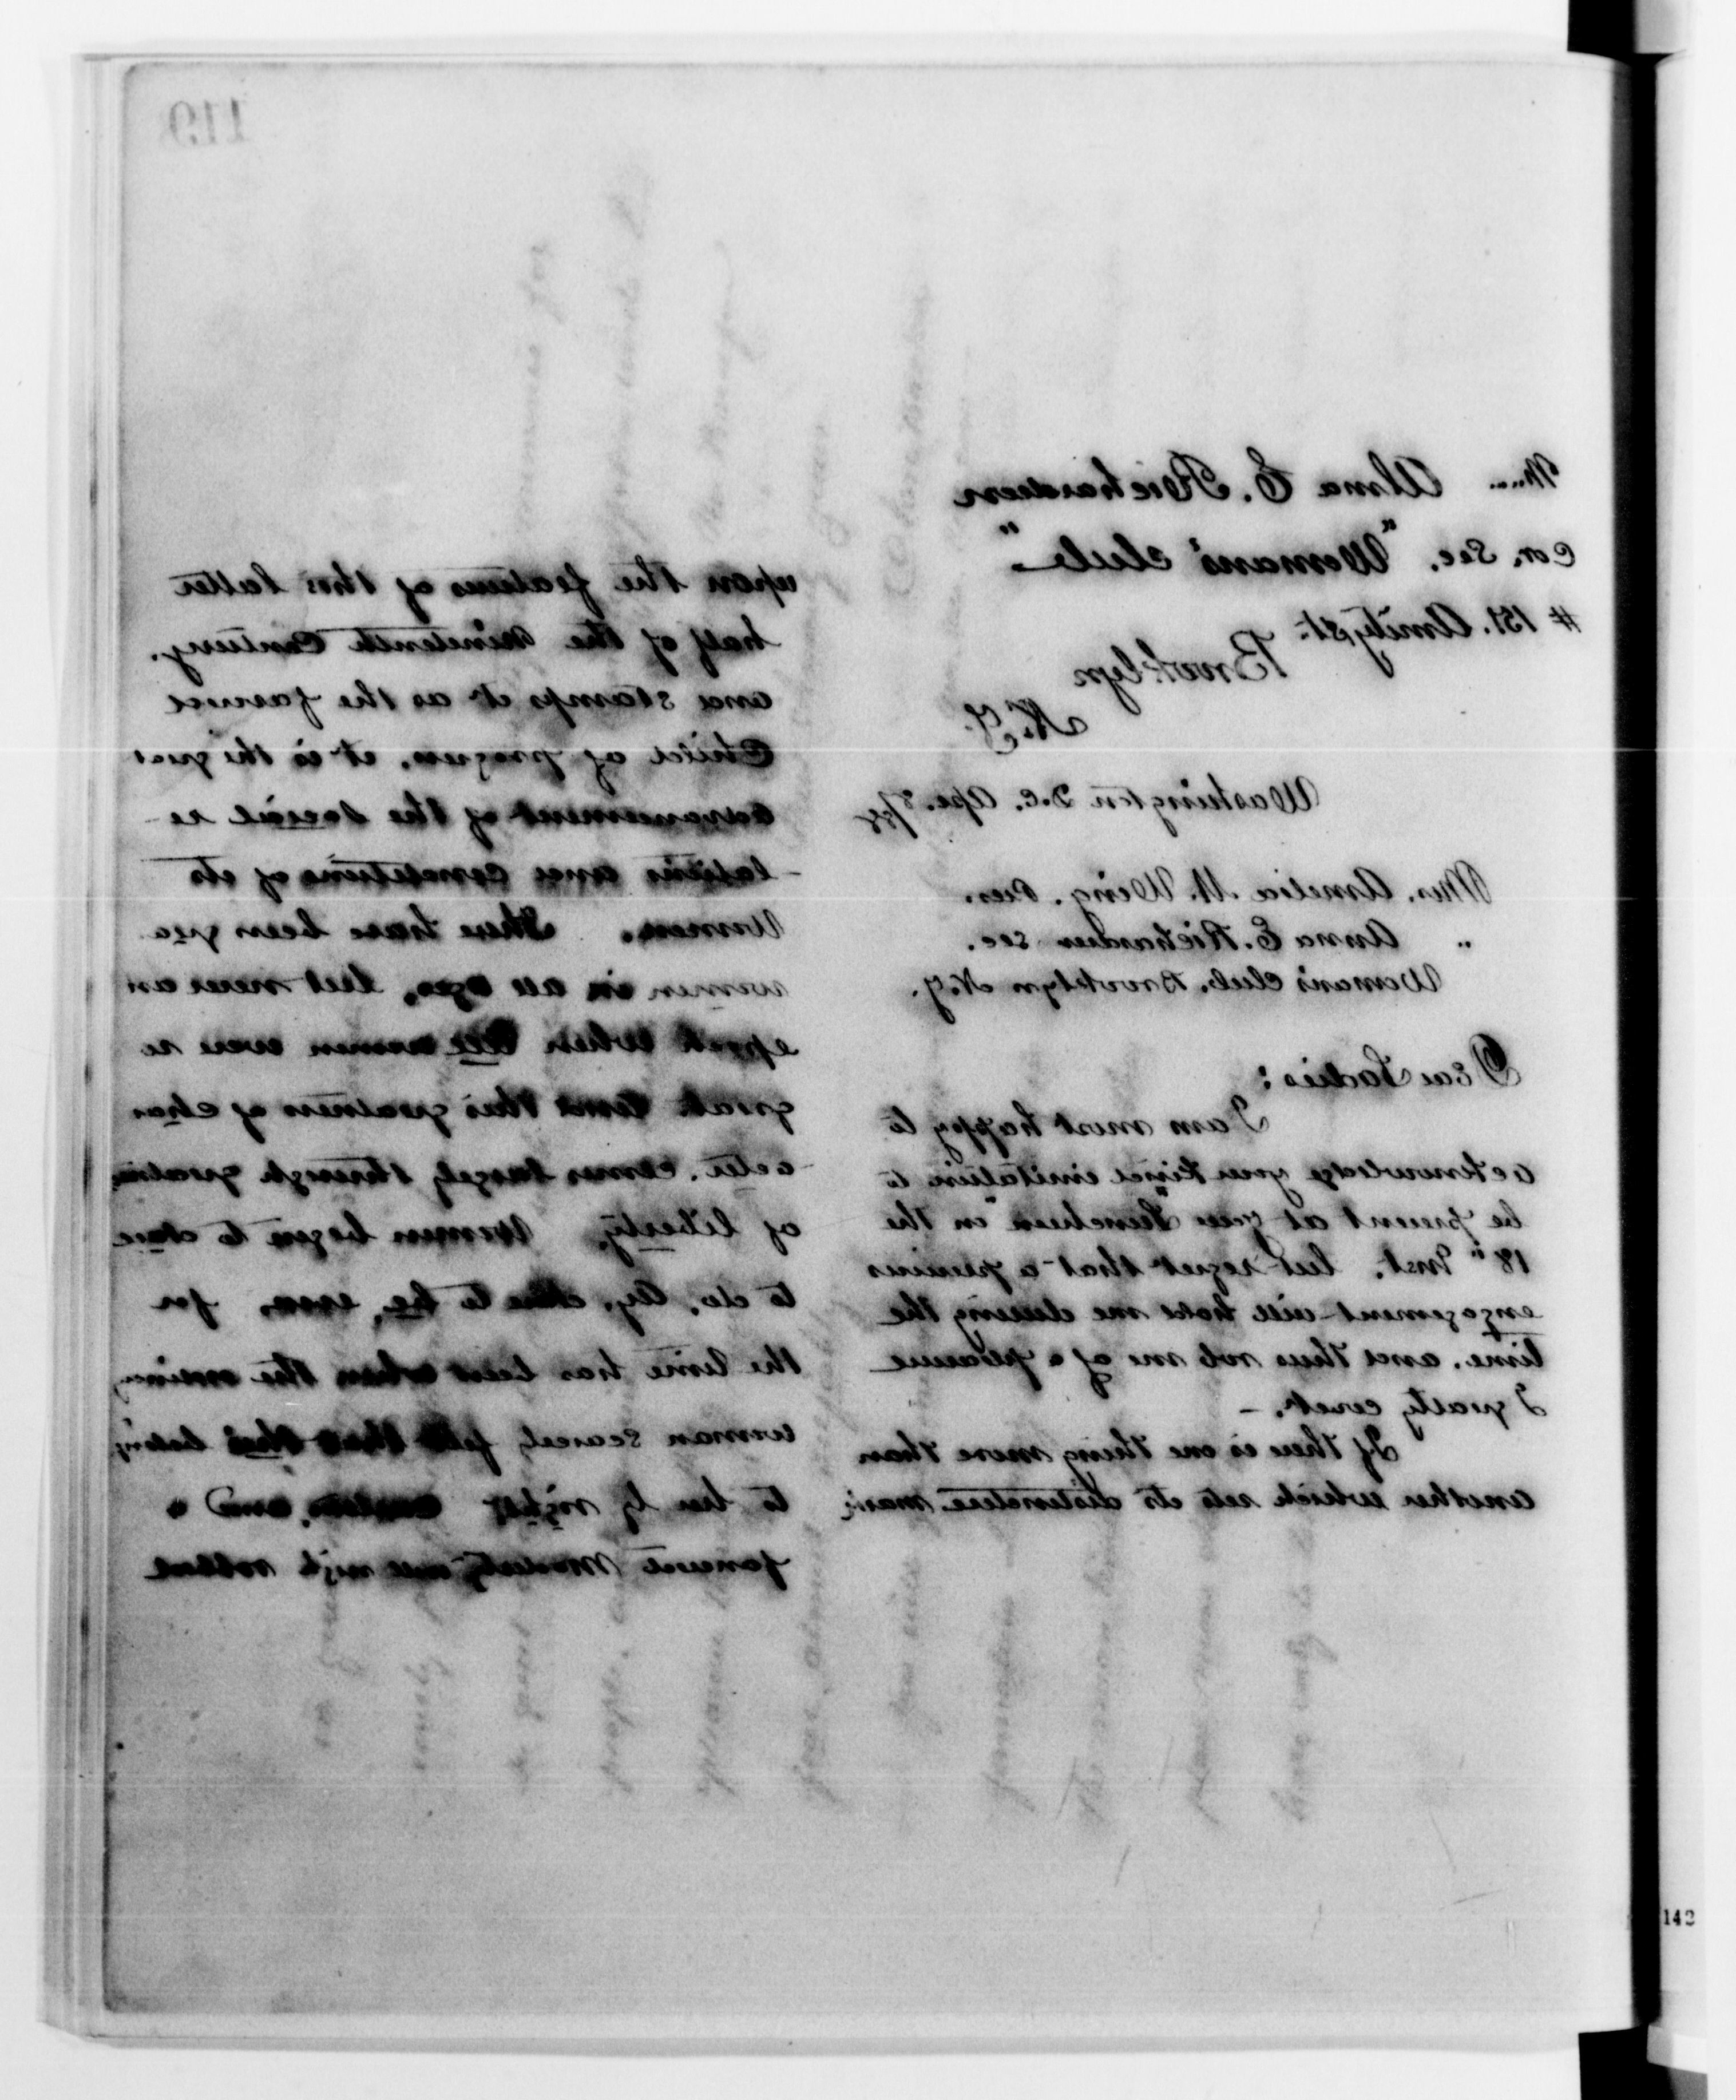 119
Mrs. Anna E. Richardson
Cor. Sec. "Woman's Club"
# 151. Amity St.
Brooklyn
N.Y.
Washington D.C. Apr. 8/88
Mrs. Amelia K. Wing. Pres.
" Anna E. Richardson sec.
Woman's Club, Brooklyn N.Y.
Dear Ladies:
I am most happy to
acknowledge your kind invitation to
be present at your "Luncheon" on the
18" Inst. but regret that a previous
engagement will hold me during the
time. and thus rob me of a pleasure
I greatly covet. -
If there is one thing more than
another which sets its distinctive mark
upon the features of this latter
half of the Nineteenth Century.
and stamps it as the fairest
Child of progress, it is the great
advancement of the social re-
-lations and conditions of its
Women. There have been great
women in all ages, but never an
epoch when all women were so
great. And this greatness of char
-acter. comes largely through
of liberty. Women begin to dare
to do, by, dare to be, even, for
the time has been when the
woman scarcely felt that this belong
to her by right and a
modesty well nigh robbed
142